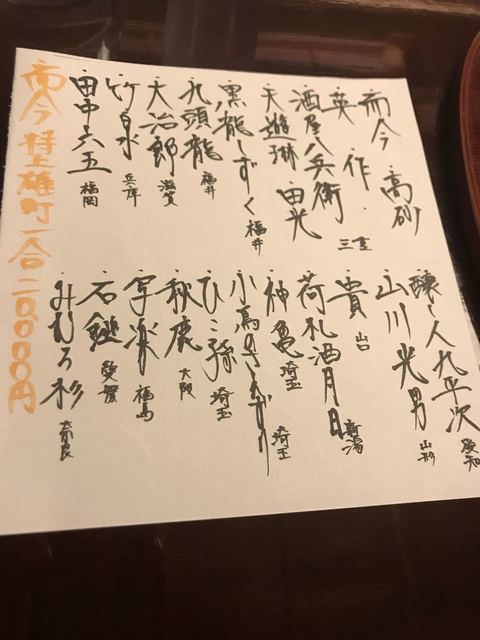 而今 高砂
英 作
酒屋八兵衛 三重
天遊琳 田光
黒龍しずく 福井
九頭龍 福井
大治郎 滋賀
竹泉 兵庫
田中六五 福岡
醸し人九平次 愛知
山川光男 山形
貴 山口
荷札酒月白 新潟
神亀 埼玉
小鳥のさえずり 埼玉
ひこ孫 埼玉
秋鹿 大阪
写楽 福島
石鎚 愛媛
みむろ杉 奈良
而今 特上雄町 一合 二〇〇〇円